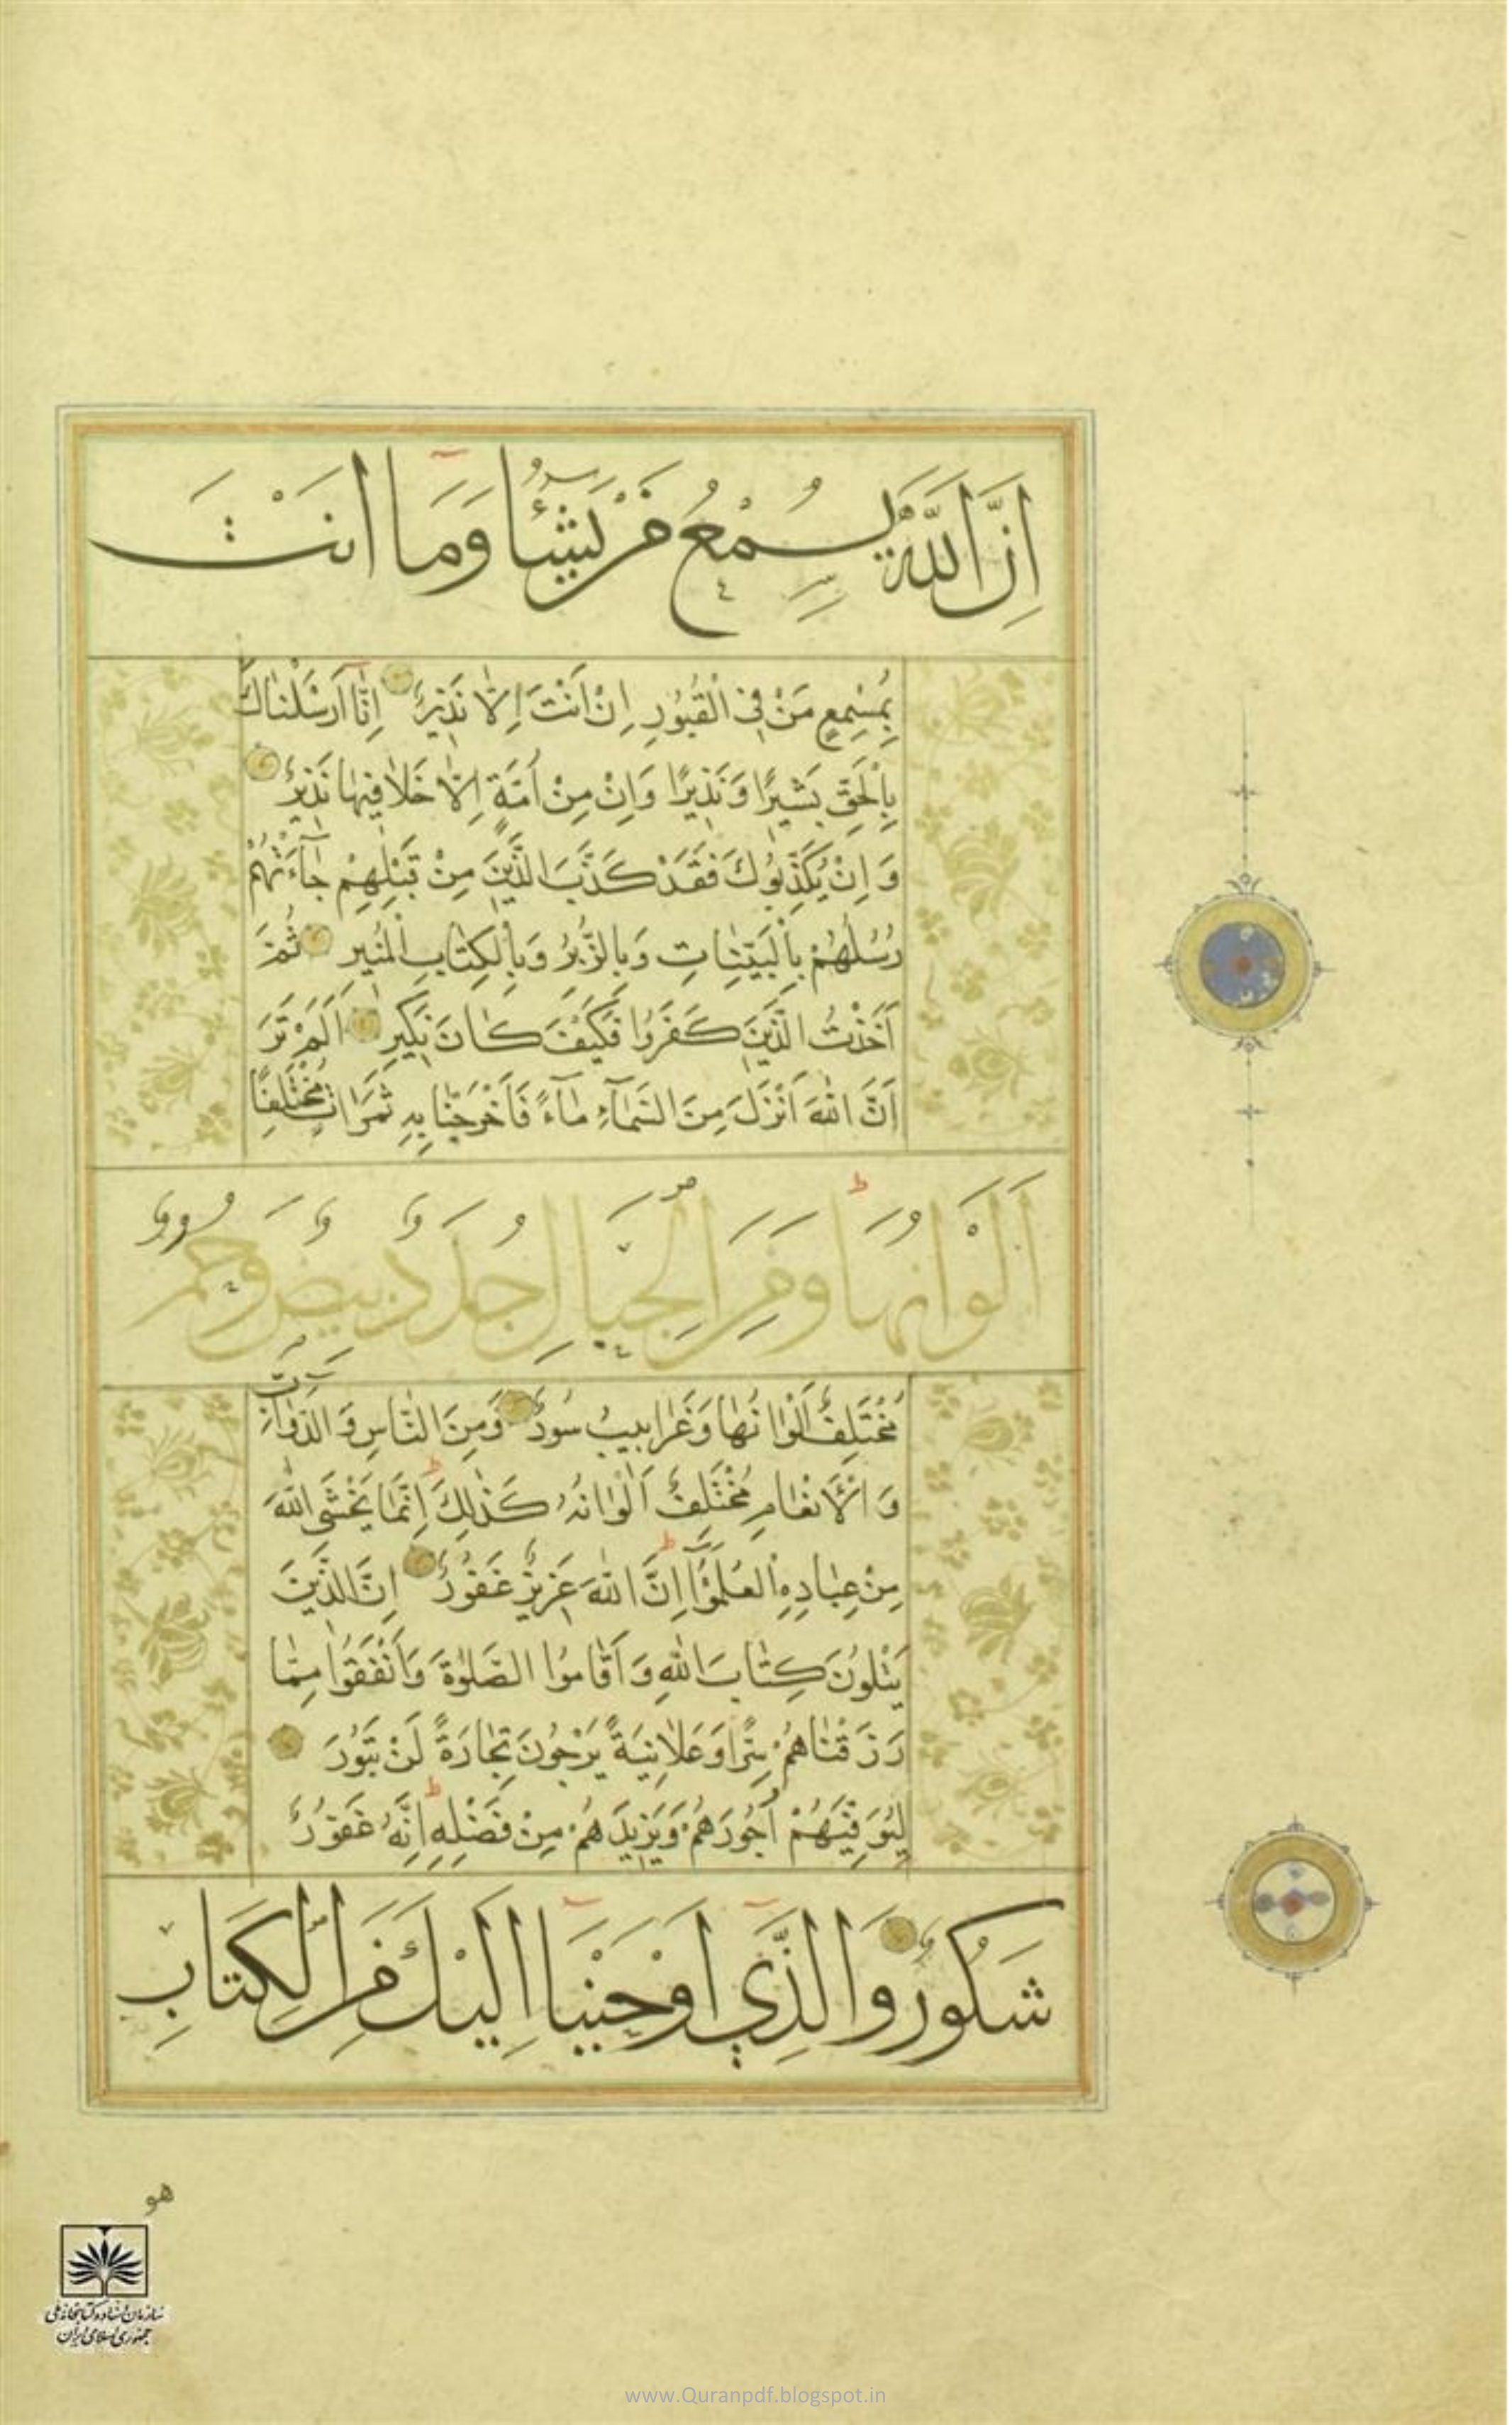 اِنَّ اللّٰهَ يُسْمِعُ مَنْ يَشَٓاءُ وَمَٓا اَنْتَ
بِمُسْمِعٍ مَنْ فِي الْقُبُورِ اِنْ اَنْتَ اِلَّا نَذِيرٌ اِنَّٓا اَرْسَلْنَاكَ
بِالْحَقِّ بَشِيرًا وَنَذِيرًا وَاِنْ مِنْ اُمَّةٍ اِلَّا خَلَا فِيهَا نَذِيرٌ
وَاِنْ يُكَذِّبُوكَ فَقَدْ كَذَّبَ الَّذِينَ مِنْ قَبْلِهِمْ جَٓاءَتْهُمْ
رُسُلُهُمْ بِالْبَيِّنَاتِ وَبِالزُّبُرِ وَبِالْكِتَابِ الْمُنِيرِ ثُمَّ
اَخَذْتُ الَّذِينَ كَفَرُوا فَكَيْفَ كَانَ نَكِيرِ اَلَمْ تَرَ
اَنَّ اللّٰهَ اَنْزَلَ مِنَ السَّمَٓاءِ مَٓاءً فَاَخْرَجْنَا بِهِ ثَمَرَاتٍ مُخْتَلِفًا
اَلْوَانُهَا وَمِنَ الْجِبَالِ جُدَدٌ بِيضٌ وَحُمْرٌ
مُخْتَلِفٌ اَلْوَانُهَا وَغَرَابِيبُ سُودٌ وَمِنَ النَّاسِ وَالدَّوَٓابِّ
وَالْاَنْعَامِ مُخْتَلِفٌ اَلْوَانُهُ كَذٰلِكَ اِنَّمَا يَخْشَى اللّٰهَ
مِنْ عِبَادِهِ الْعُلَمٰٓؤُا اِنَّ اللّٰهَ عَزِيزٌ غَفُورٌ اِنَّ الَّذِينَ
يَتْلُونَ كِتَابَ اللّٰهِ وَاَقَامُوا الصَّلٰوةَ وَاَنْفَقُوا مِمَّا
رَزَقْنَاهُمْ سِرًّا وَعَلَانِيَةً يَرْجُونَ تِجَارَةً لَنْ تَبُورَ
لِيُوَفِّيَهُمْ اُجُورَهُمْ وَيَزِيدَهُمْ مِنْ فَضْلِهِ اِنَّهُ غَفُورٌ
شَكُورٌ وَالَّذِي اَوْحَيْنَٓا اِلَيْكَ مِنَ الْكِتَابِ
هو
سازمان اسناد و کتابخانه ملی
جمهوری اسلامی ایران
www.Quranpdf.blogspot.in